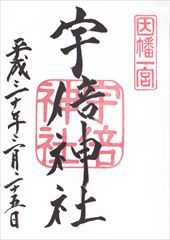 因幡一宮
宇倍神社
宇倍神社
平成二十年二月二十五日